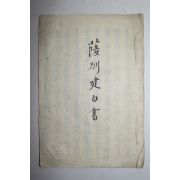 薩州建白書